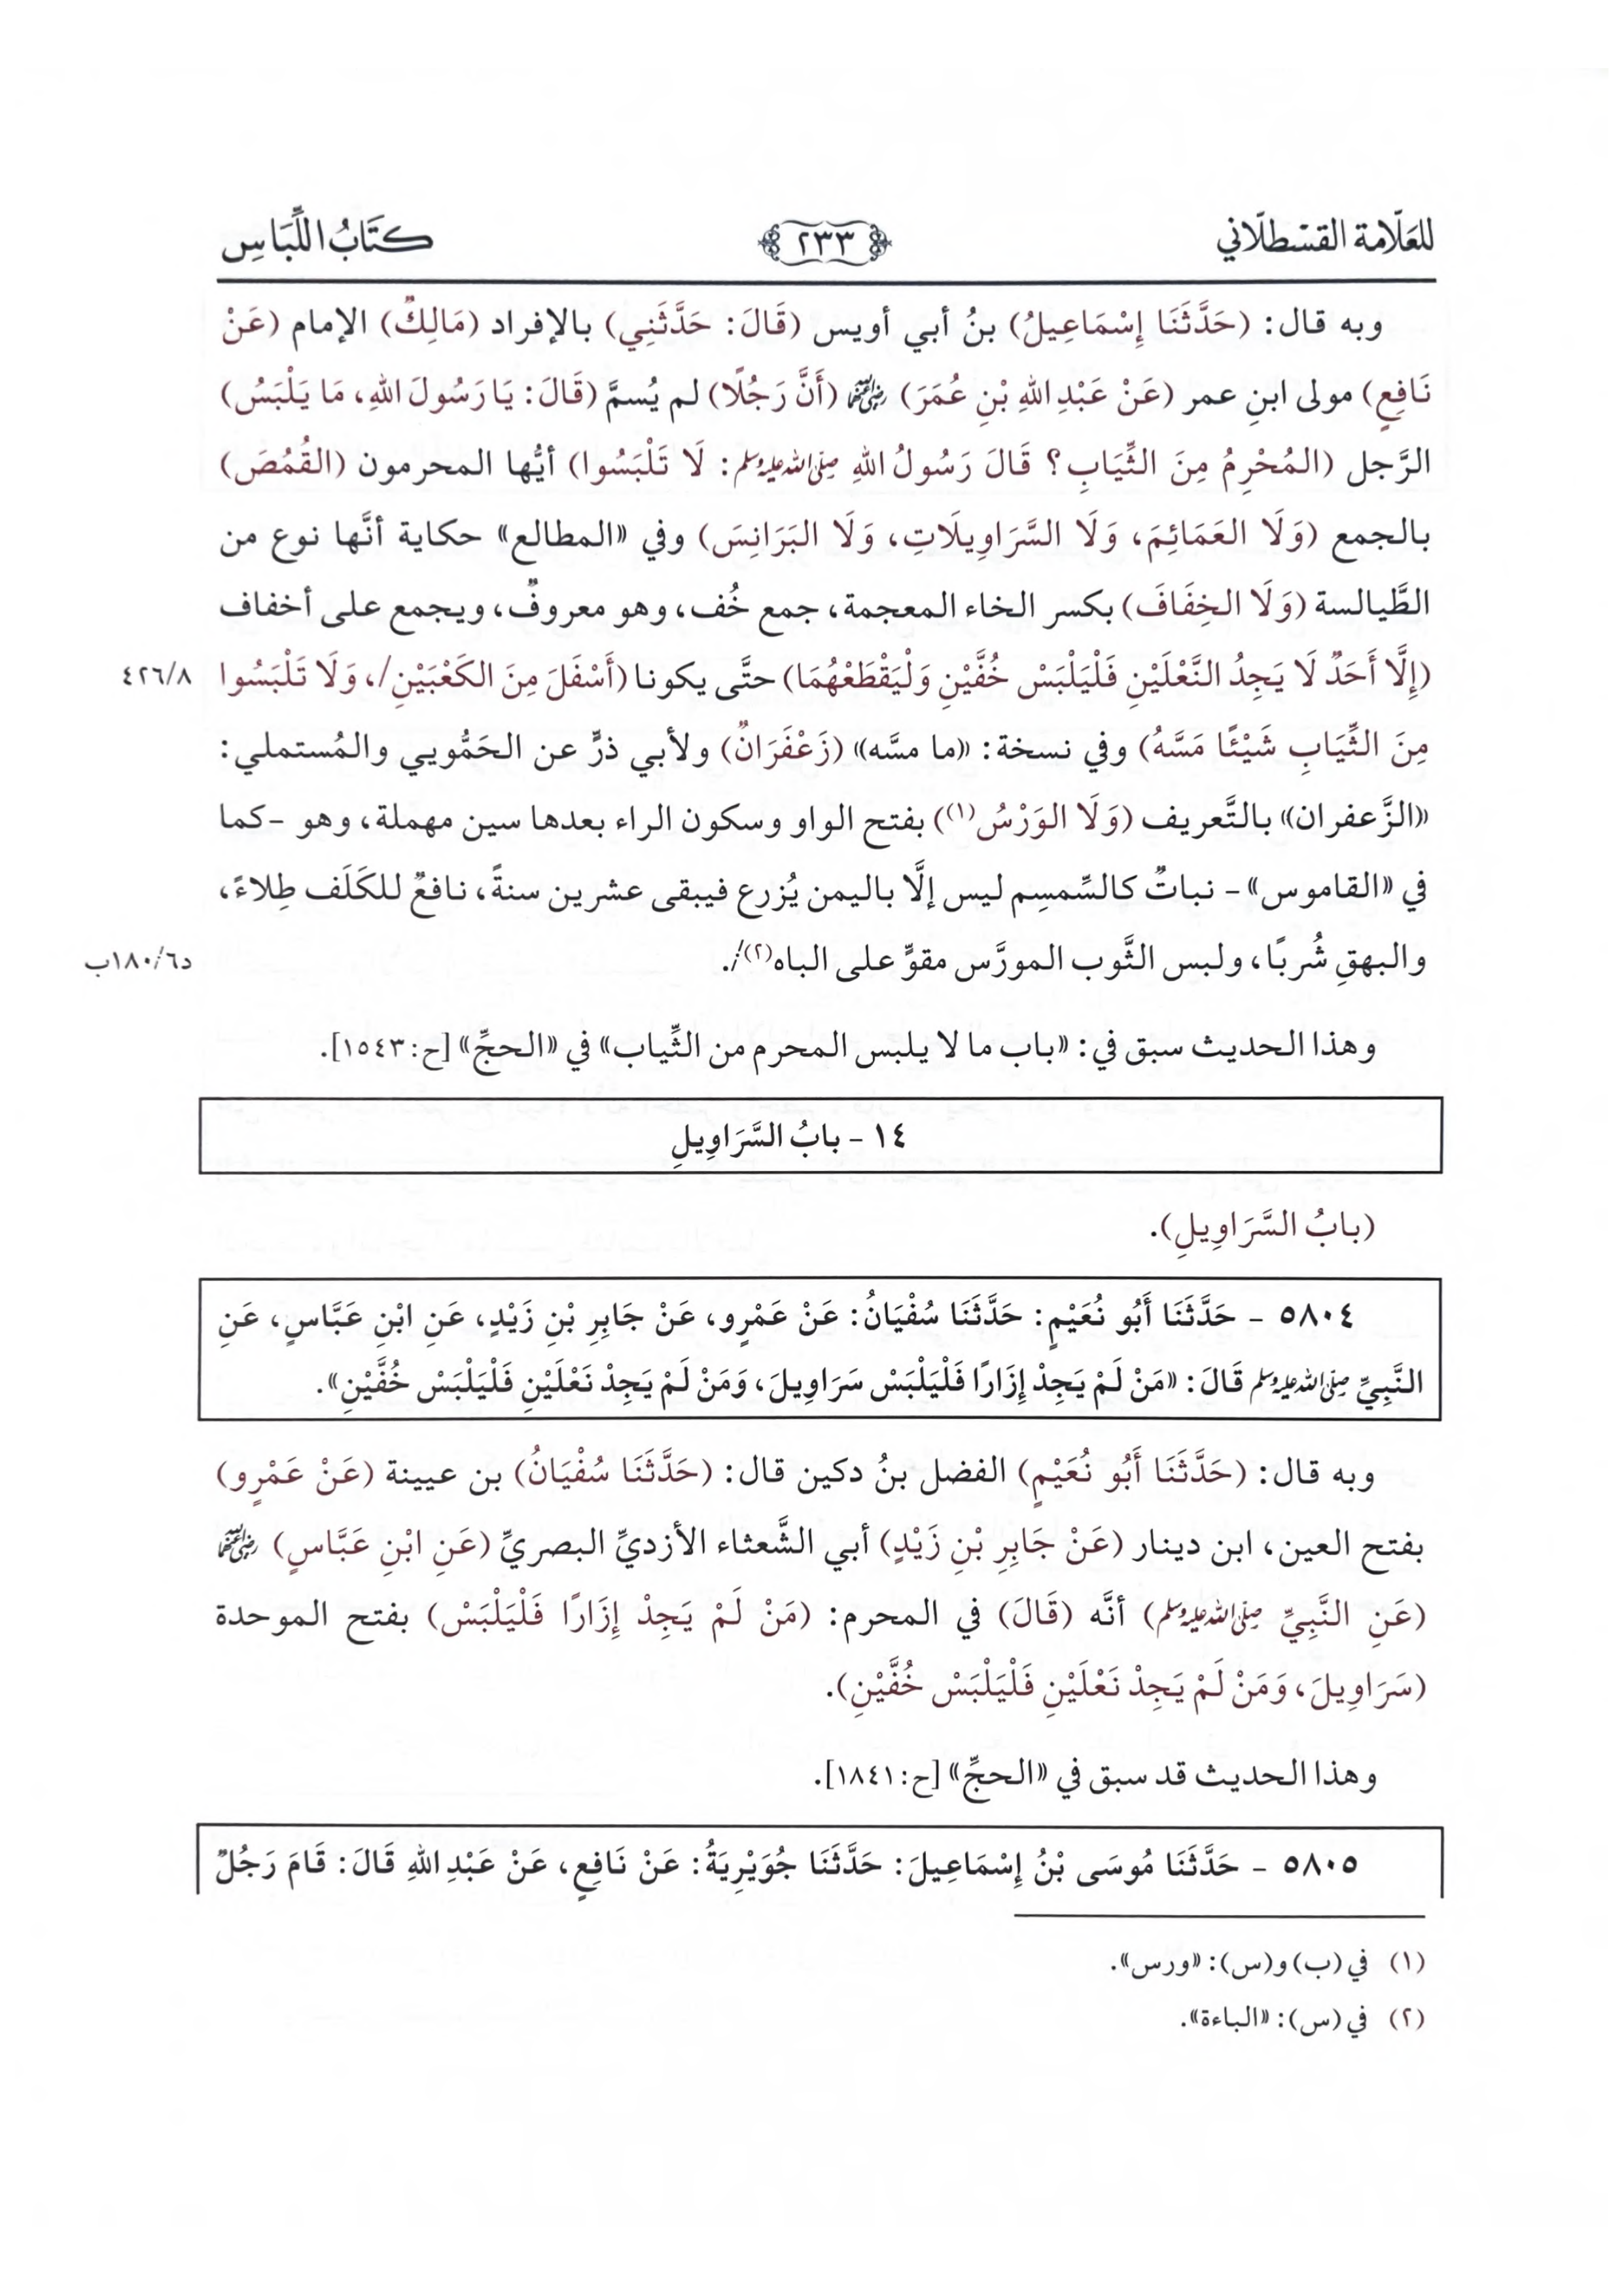 للعلّامة القسْطلّاني ٢٣٣ كتَابُ اللِّبَاسِ
وبه قال: (حَدَّثَنَا إِسْمَاعِيلُ) بنُ أبي أويس (قَالَ: حَدَّثَنِي) بالإفراد (مَالِكٌ) الإمام (عَنْ
نَافِعٍ) مولى ابنِ عمر (عَنْ عَبْدِ اللهِ بْنِ عُمَرَ) رضي الله عنهما (أَنَّ رَجُلًا) لم يُسمَّ (قَالَ: يَا رَسُولَ اللهِ، مَا يَلْبَسُ)
الرَّجل (المُحْرِمُ مِنَ الثِّيَابِ؟ قَالَ رَسُولُ اللهِ صلى الله عليه وسلم: لَا تَلْبَسُوا) أيُّها المحرمون (القُمُصَ)
بالجمع (وَلَا العَمَائِمَ، وَلَا السَّرَاوِيلَاتِ، وَلَا البَرَانِسَ) وفي «المطالع» حكاية أنَّها نوع من
الطَّيالسة (وَلَا الخِفَافَ) بكسر الخاء المعجمة، جمع خُف، وهو معروفٌ، ويجمع على أخفاف
(إِلَّا أَحَدٌ لَا يَجِدُ النَّعْلَيْنِ فَلْيَلْبَسْ خُفَّيْنِ وَلْيَقْطَعْهُمَا) حتَّى يكونا (أَسْفَلَ مِنَ الكَعْبَيْنِ/، وَلَا تَلْبَسُوا ٤٢٦/٨
مِنَ الثِّيَابِ شَيْئًا مَسَّهُ) وفي نسخة: «ما مسَّه» (زَعْفَرَانٌ) ولأبي ذرٍّ عن الحَمُّويي والمُستملي:
«الزَّعفران» بالتَّعريف (وَلَا الوَرْسُ(١)) بفتح الواو وسكون الراء بعدها سين مهملة، وهو -كما
في «القاموس»- نباتٌ كالسِّمسِم ليس إلَّا باليمن يُزرع فيبقى عشرين سنةً، نافعٌ للكَلَف طِلاءً،
والبهقِ شُربًا، ولبس الثَّوب المورَّس مقوٍّ على الباه(٢)/. د١٨٠/٦ب
وهذا الحديث سبق في: «باب ما لا يلبس المحرم من الثِّياب» في «الحجِّ» [ح:١٥٤٣].
١٤ - بابُ السَّرَاوِيلِ
(بابُ السَّرَاوِيلِ).
٥٨٠٤ - حَدَّثَنَا أَبُو نُعَيْمٍ: حَدَّثَنَا سُفْيَانُ: عَنْ عَمْرٍو، عَنْ جَابِرِ بْنِ زَيْدٍ، عَنِ ابْنِ عَبَّاسٍ، عَنِ
النَّبِيِّ صلى الله عليه وسلم قَالَ: «مَنْ لَمْ يَجِدْ إِزَارًا فَلْيَلْبَسْ سَرَاوِيلَ، وَمَنْ لَمْ يَجِدْ نَعْلَيْنِ فَلْيَلْبَسْ خُفَّيْنِ».
وبه قال: (حَدَّثَنَا أَبُو نُعَيْمٍ) الفضل بنُ دكين قال: (حَدَّثَنَا سُفْيَانُ) بن عيينة (عَنْ عَمْرٍو)
بفتح العين، ابن دينار (عَنْ جَابِرِ بْنِ زَيْدٍ) أبي الشَّعثاء الأزديِّ البصريِّ (عَنِ ابْنِ عَبَّاسٍ) رضي الله عنهما
(عَنِ النَّبِيِّ صلى الله عليه وسلم) أنَّه (قَالَ) في المحرم: (مَنْ لَمْ يَجِدْ إِزَارًا فَلْيَلْبَسْ) بفتح الموحدة
(سَرَاوِيلَ، وَمَنْ لَمْ يَجِدْ نَعْلَيْنِ فَلْيَلْبَسْ خُفَّيْنِ).
وهذا الحديث قد سبق في «الحجِّ» [ح:١٨٤١].
٥٨٠٥ - حَدَّثَنَا مُوسَى بْنُ إِسْمَاعِيلَ: حَدَّثَنَا جُوَيْرِيَةُ: عَنْ نَافِعٍ، عَنْ عَبْدِ اللهِ قَالَ: قَامَ رَجُلٌ
(١) في (ب) و(س): «ورس».
(٢) في (س): «الباءة».